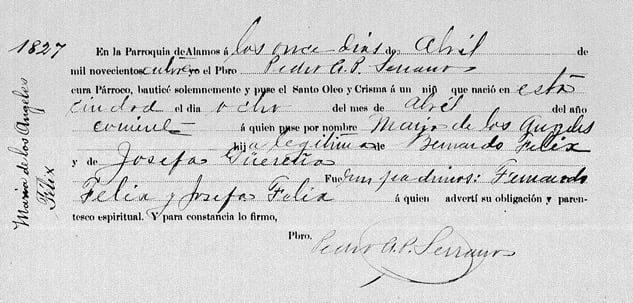 1827
Maria de los Angeles
Félix
En la Parroquia de Alamos á los once dias de Abril de
mil novecientos catorce yo el Pbro Pedro A. P. Serrano
cura Párroco, bauticé solemnemente y puse el Santo Oleo y Crisma á un niñ que nació en esta
ciudad el dia ocho del mes de Abril del año
corriente á quien puse por nombre Maria de los Angeles
hija legitima de Bernardo Félix
y de Josefa Güereña
Fueron padrinos: Fernando
Felix y Josefa Felix á quien advertí su obligación y paren-
tesco espiritual. Y para constancia lo firmo,
Pbro. Pedro A. P. Serrano